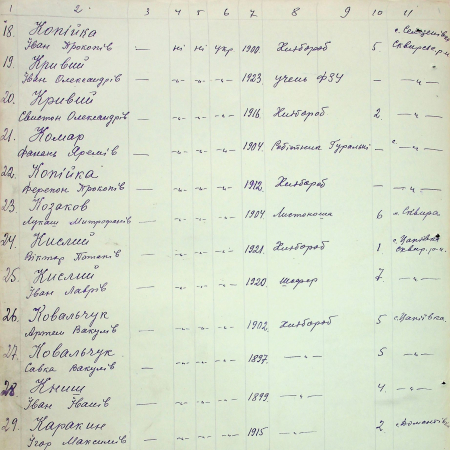 1 2. 3 4 5 6 7 8 9 10 11
18. Копійка
Іван Прокопів — ні ні укр 1900. Хлібороб 5
19 Кривий
Іван Олександрів — -"- -"- -"- 1923 учень ФЗУ — -"-
20. Кривий
Олександрів — -"- -"- -"- 1916. Хлібороб 2. — -"-
21. Комар
Яремів — -"- -"- -"- 1904 Робітник Гуральні — -"-
22. Копійка
Прокопів — -"- -"- -"- 1912. Хлібороб — -"-
23. Козаков
Лукаш Митрофанів — -"- -"- -"- 1904 Листоноша 6 м. Сквира.
24. Кислий
Віктор Потапів — -"- -"- -"- 1921. Хлібороб 1
25. Кислий
Іван Лаврів — -"- -"- -"- 1920. шофер 7. — -"-
26. Ковальчук
Артем Вакулів — -"- -"- -"- 1902. Хлібороб 5
27. Ковальчук
Савка Вакулів — -"- -"- -"- 1897. — -"- 5 — -"-
28. Книш
Іван Іванів — -"- -"- -"- 1899. — -"- 4. — -"-
29. Каракин
Ігор Максимів — -"- -"- -"- 1915 — -"- 2.